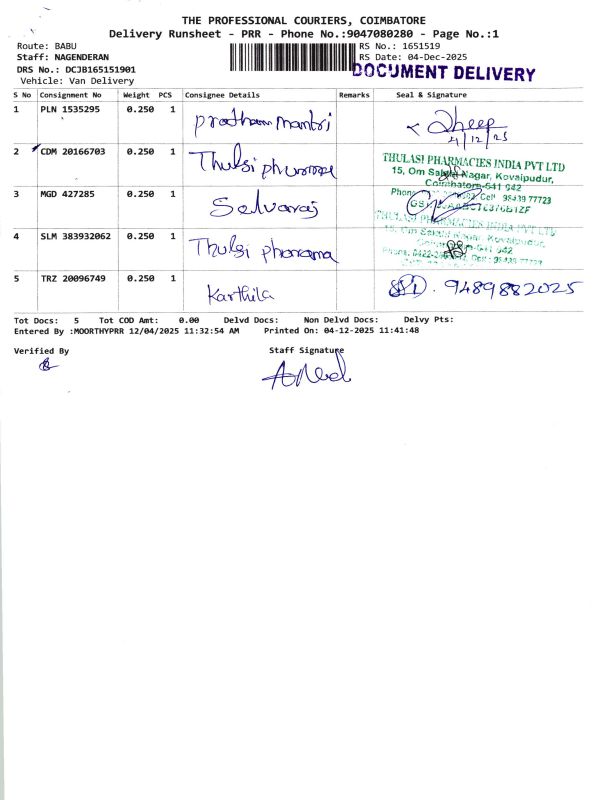 THE PROFESSIONAL COURIERS, COIMBATORE
Delivery Runsheet - PRR - Phone No.:9047080280 - Page No.:1
Route: BABU
RS No.: 1651519
Staff: NAGENDERAN
RS Date: 04-Dec-2025
DRS No.: DCJB165151901
DOCUMENT DELIVERY
Vehicle: Van Delivery
S No Consignment No Weight PCS Consignee Details Remarks Seal & Signature
1 PLN 1535295 0.250 1 4/12/25
2 CDM 20166703 0.250 1 Thulsi
THULASI PHARMACIES INDIA PVT LTD
15, Om Sakthi Nagar, Kovaipudur,
Coimbatore-641 042
3 MGD 427285 0.250 1 Selvaraj
98439 77723
THULASI PHARMACIES INDIA PVT LTD
4 SLM 383932062 0.250 1 Thulsi
5 TRZ 20096749 0.250 1 Karthika 9489882025
Tot Docs: 5 Tot COD Amt: 0.00 Delvd Docs: Non Delvd Docs: Delvy Pts:
Entered By :MOORTHYPRR 12/04/2025 11:32:54 AM Printed On: 04-12-2025 11:41:48
Verified By Staff Signature